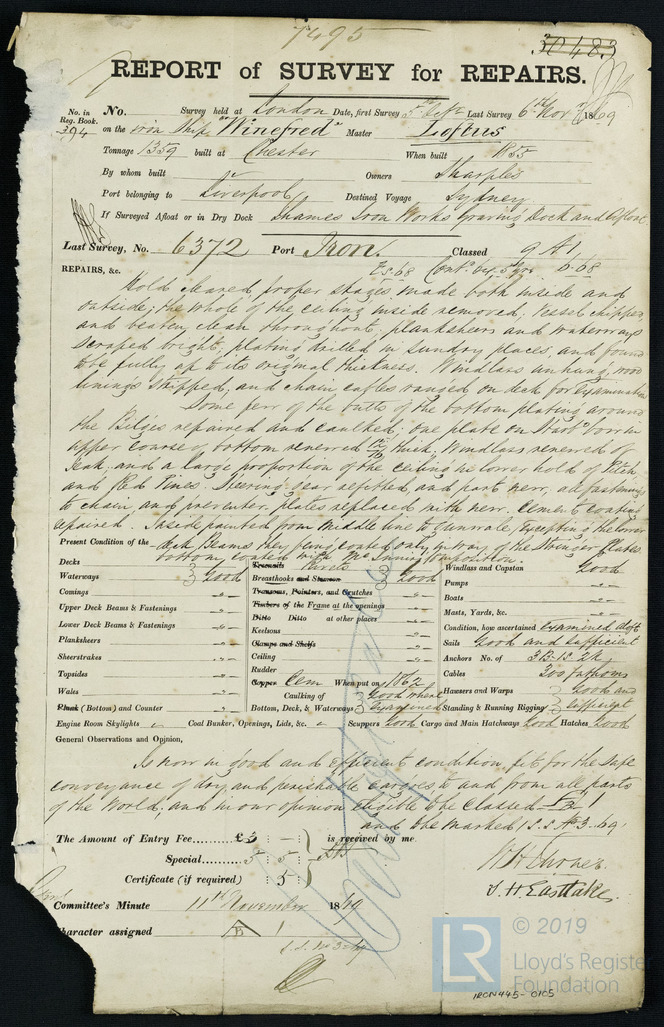 7495
30483
REPORT of SURVEY for REPAIRS.
No. in Reg. Book. 394
No. Survey held at London Date, first Survey 5th Octr Last Survey 6th Nov 1869
on the Iron Ship "Winefred" Master Loftus
Tonnage 1359 built at Chester When built 1855
By whom built Owners Sharples
Port belonging to Liverpool Destined Voyage Sydney
If Surveyed Afloat or in Dry Dock Thames Iron Works Graving Dock and Afloat
Last Survey, No. 6372 Port Iron. Classed 9 A 1
REPAIRS, &c. Ts. 68 Contd 6 yrs 6.68
Hold cleared, proper stages made both inside and
outside; the whole of the ceiling inside removed; vessel chipped
and beaten clean throughout; plansheers and waterways
scraped bright; plating drilled in sundry places, and found
to be fully up to its original thickness. Windlass unhung, wood
linings stripped, and chain cables ranged on deck for Examination
Some few of the butts of the bottom plating around
the Bilges repaired and caulked; one plate on Starbd bow in
upper course of bottom renewed 12/16 thick; Windlass renewed of
Teak; and a large proportion of the ceiling in lower hold of Pitch
and Red Pines. Steering gear refitted and part new, all fastenings
to chain and preventer plates replaced with new. Cement coating
repaired. Inside painted from Middle line to Gunwale, Excepting the lower
deck Beams, they being coated only in way of the Stringer Plates
bottom coated with McInnes Composition.
Present Condition of the
Decks Good
Waterways
Comings
Upper Deck Beams & Fastenings
Lower Deck Beams & Fastenings
Planksheers
Sheerstrakes
Topsides
Wales
Plank (Bottom) and Counter
Engine Room Skylights Coal Bunker, Openings, Lids, &c. Scuppers Good Cargo and Main Hatchways Good Hatches Good
Treenails Rivets
Breasthooks and Stemson Good
Transoms, Pointers, and Crutches
Timbers of the Frame at the openings
Ditto Ditto at other places
Keelsons
Clamps and Shelfs
Ceiling
Rudder
Copper Cem When put on 1862
Caulking of Good where
Bottom, Deck, & Waterways Examined
Windlass and Capstan Good
Pumps
Boats
Masts, Yards, &c.
Condition, how ascertained Examined Aloft
Sails Good and Sufficient
Anchors No. of 3 B. 1 S. 2 K
Cables 300 fathoms
Hawsers and Warps Good and
Standing & Running Rigging Sufficient
General Observations and Opinion,
Is now in good and Efficient condition, fit for the safe
conveyance of dry and perishable cargoes, to and from all parts
of the World; and in our opinion eligible to be Classed B 1
and to be Marked S.S. No 3. 69
The Amount of Entry Fee £5 — is received by me.
Special 5 5 —
Certificate (if required) 5
T. H. Eastlake
Committee's Minute 11th November 1869
Character assigned B 1
S.S. No 3-69
© 2019
LR
Lloyd's Register
Foundation
IRON445-0105